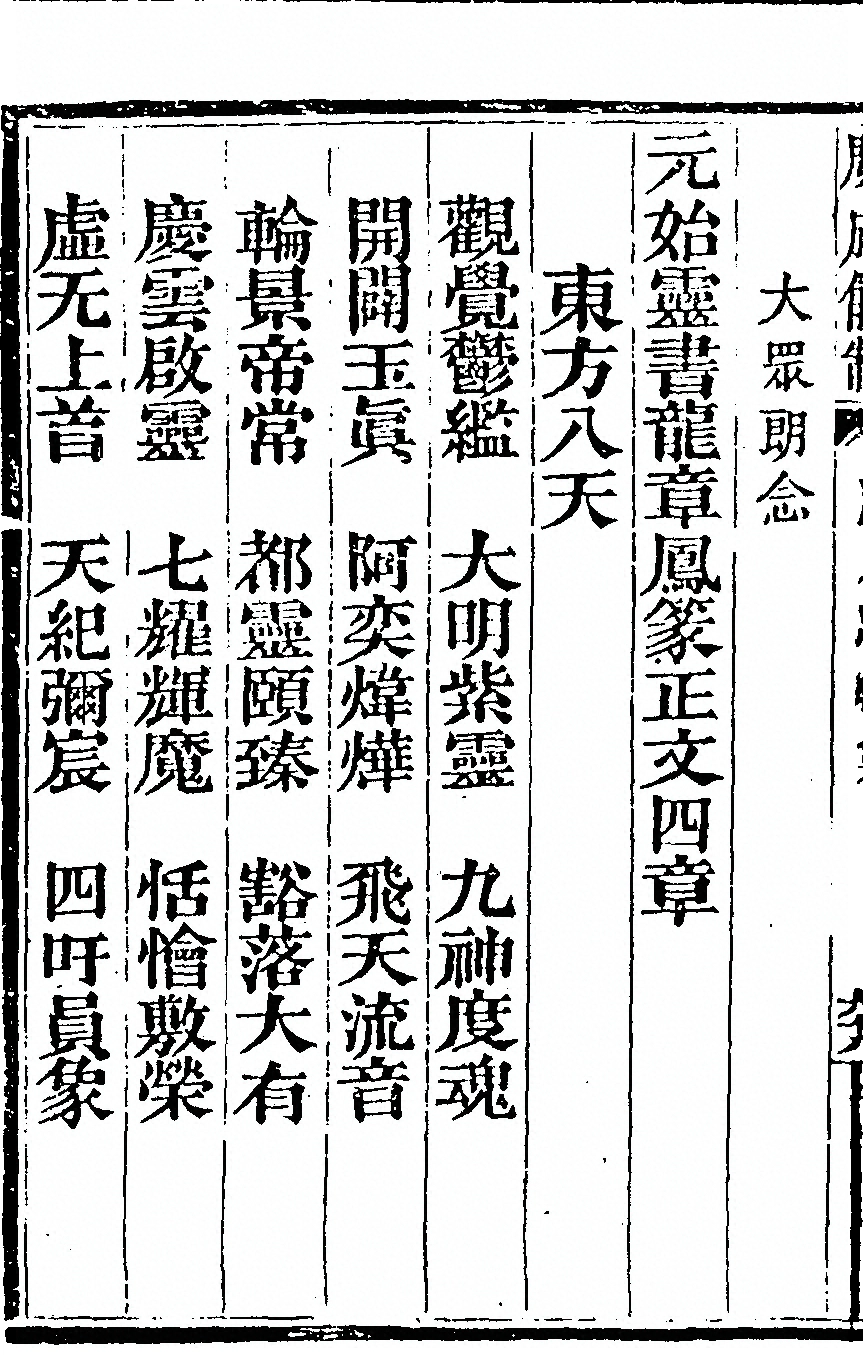 大眾朗念
元始靈書龍章鳳篆正文四章
東方八天
觀覺鬱繿　大明紫靈　九神度魂
開闢玉眞　阿奕煒燁　飛天流音
輪景帝常　都靈頤臻　豁落大有
慶雲啟靈　七耀輝魔　恬憺敷榮
虛无上首　天紀彌宸　四吁員象